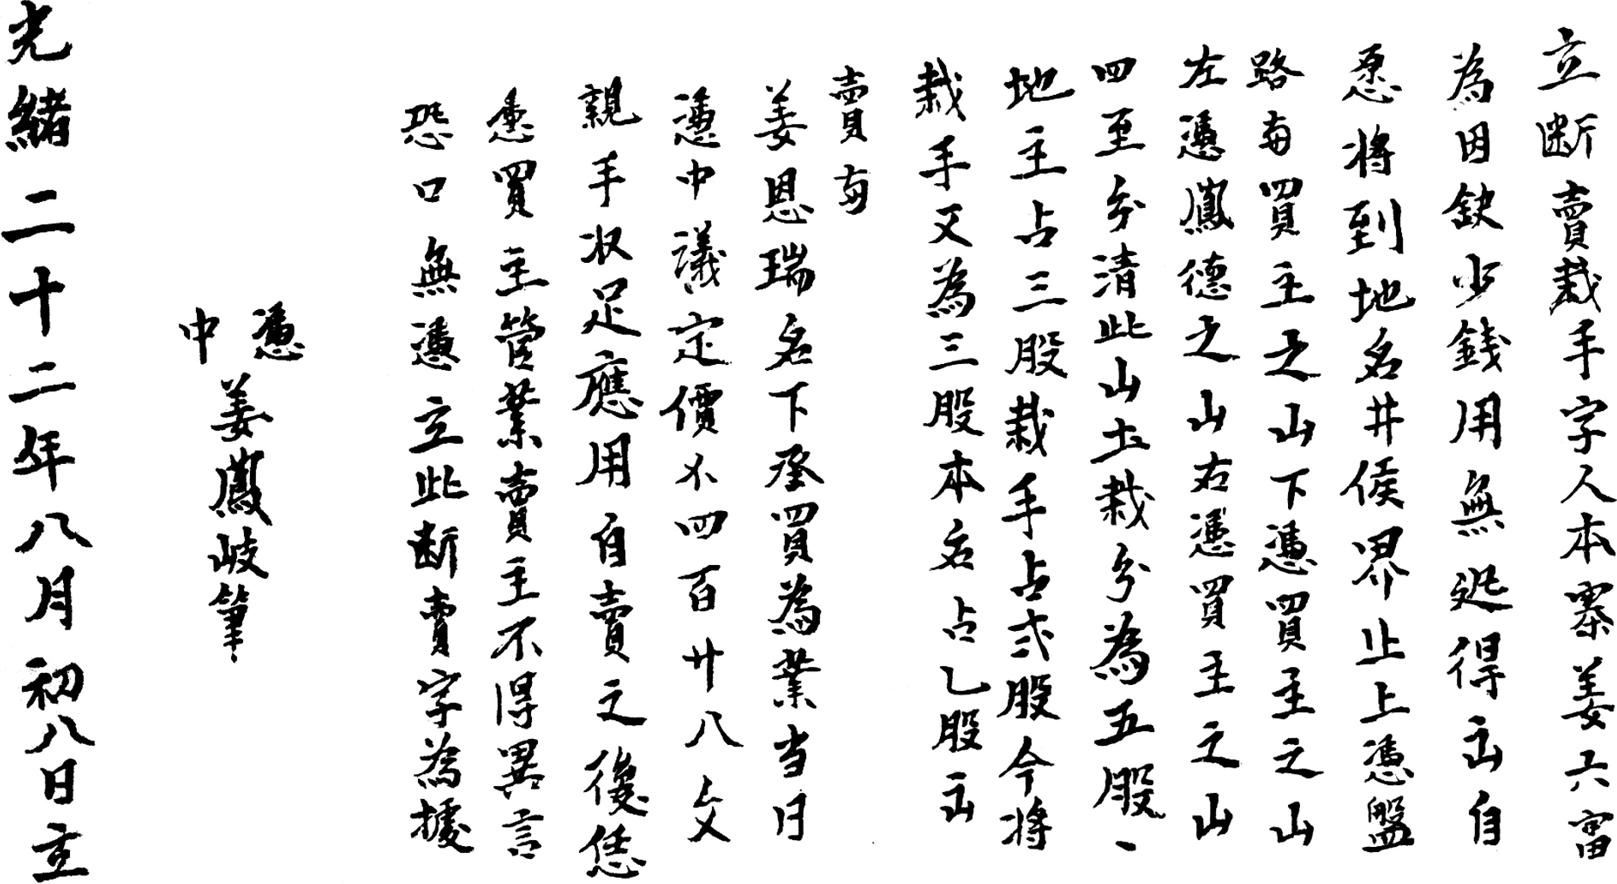 立断賣栽手字人本寨姜六富
為因缺少錢用無処得出自
愿將到地名井侯界止上憑盤
路与買主之山下憑買主之山
左憑鳳德之山右憑買主之山
四至分清此山土栽分為五股、
地主占三股栽手占弍股今將
栽手又為三股本名占乙股出
賣与
姜恩瑞名下承買為業当日
憑中議定價不四百廿八文
親手收足應用自賣之後恁
憑買主管業賣主不得異言
恐口無憑立此断賣字為據
憑
中
姜鳳岐筆
光緒二十二年八月初八日立